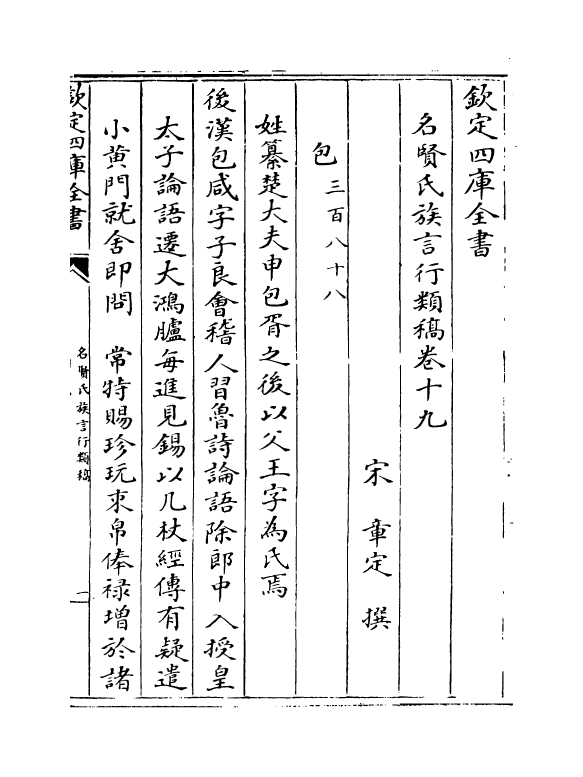 欽定四庫全書
名賢氏族言行類稿卷十九
宋 章定 撰
包 三百八十八
姓纂楚大夫申包胥之後以父王字為氏焉
後漢包咸字子良會稽人習魯詩論語除郎中入授皇
太子論語遷大鴻臚每進見錫以几杖經傳有疑遣
小黄門就舍即問 常特賜珍玩束帛俸禄增於諸
欽定四庫全書
名賢氏族言行類稿
一